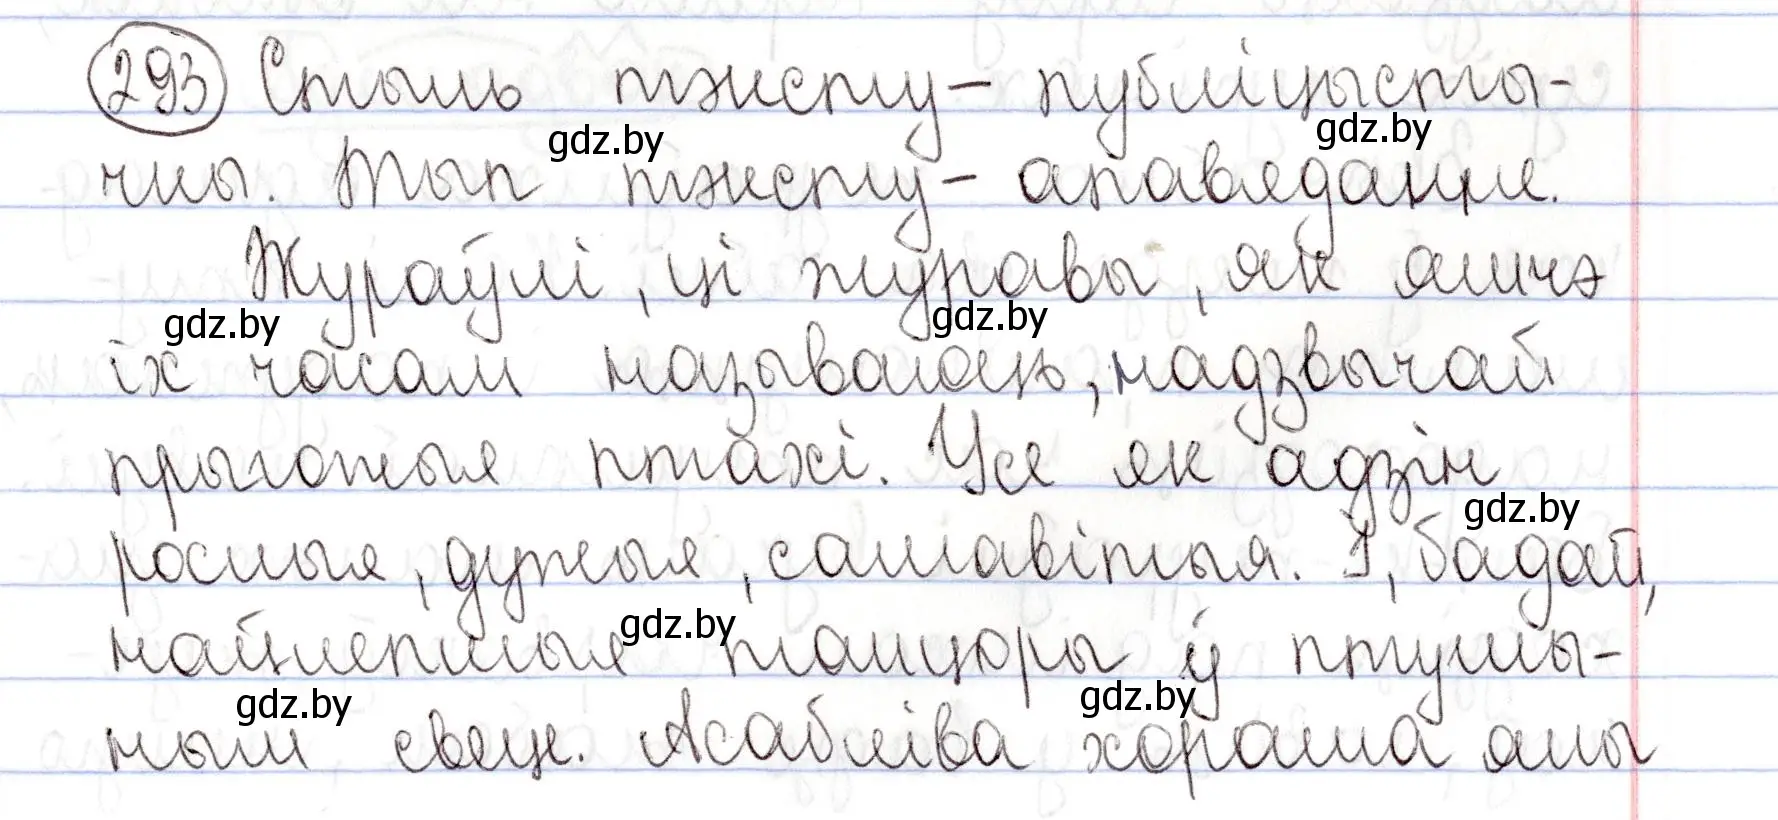 293 Стыль тэксту – публіцысты-
gdz.by gdz.by
чны. Тып тэксту – апавяданне.
Жураўлі, ці журавы, як яшчэ
gdz.by gdz.by
іх часам называюць, надзвычай
прыгожыя птахі. Усе як адзін
gdz.by
рослыя, дужыя, самавітыя. І, бадай,
gdz.by
найлепшыя танцоры ў птушы-
gdz.by gdz.by
ным свеце. Асабліва хораша яны